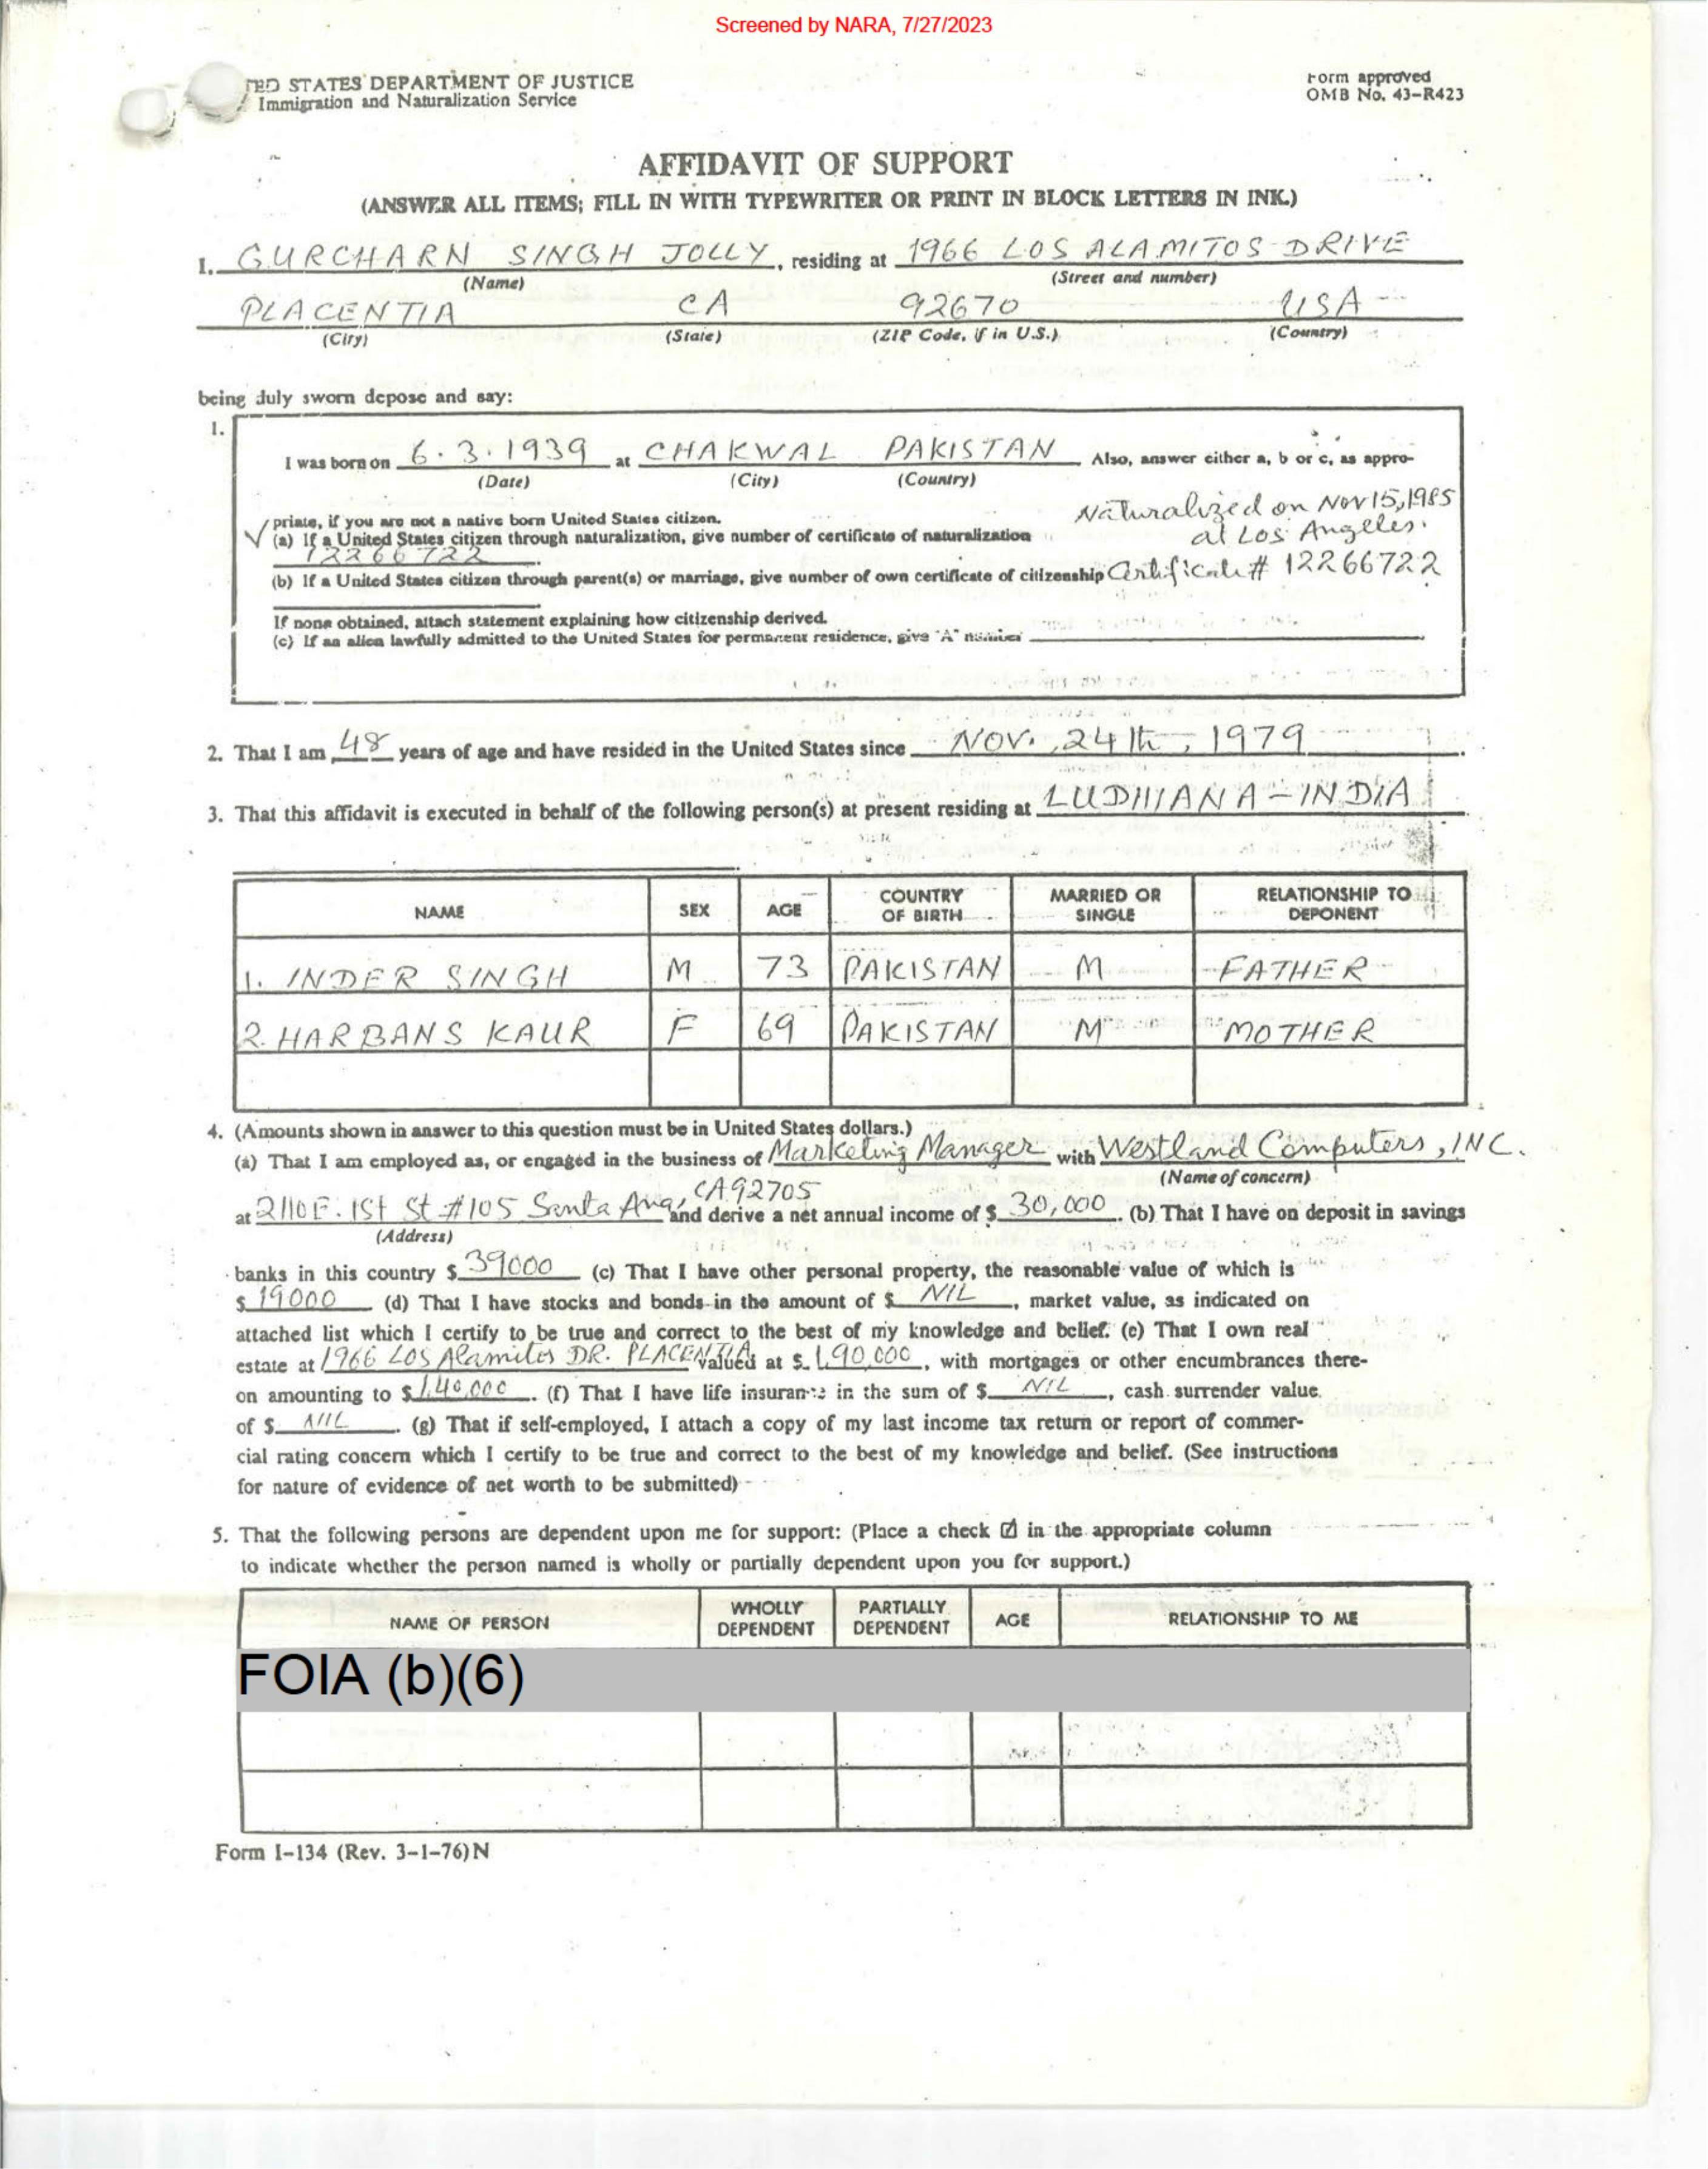 Screened by NARA, 7/27/2023
TED STATES DEPARTMENT OF JUSTICE
Immigration and Naturalization Service
Form approved
OMB No. 43-R423
AFFIDAVIT OF SUPPORT
(ANSWER ALL ITEMS; FILL IN WITH TYPEWRITER OR PRINT IN BLOCK LETTERS IN INK.)
I. GURCHARN SINGH JOLLY, residing at 1966 LOS ALAMITOS DRIVE
(Name) (Street and number)
PLACENTIA CA 92670 USA
(City) (State) (ZIP Code, if in U.S.) (Country)
being duly sworn depose and say:
1.
I was born on 6.3.1939 at CHAKWAL PAKISTAN Also, answer either a, b or c, as appro-
(Date) (City) (Country)
priate, if you are not a native born United States citizen.
Naturalized on Nov 15, 1985
at Los Angeles.
(a) If a United States citizen through naturalization, give number of certificate of naturalization
12266722
(b) If a United States citizen through parent(s) or marriage, give number of own certificate of citizenship Certificate # 12266722
If none obtained, attach statement explaining how citizenship derived.
(c) If an alien lawfully admitted to the United States for permanent residence, give "A" number
2. That I am 48 years of age and have resided in the United States since NOV. 24th, 1979
3. That this affidavit is executed in behalf of the following person(s) at present residing at LUDHIANA-INDIA
NAME SEX AGE COUNTRY OF BIRTH MARRIED OR SINGLE RELATIONSHIP TO DEPONENT
1. INDER SINGH M 73 PAKISTAN M FATHER
2. HARBANS KAUR F 69 PAKISTAN M MOTHER
4. (Amounts shown in answer to this question must be in United States dollars.)
(a) That I am employed as, or engaged in the business of Marketing Manager with Westland Computers, INC.
(Name of concern)
CA 92705
at 2110 E. 1st St #105 Santa Ana, and derive a net annual income of $ 30,000. (b) That I have on deposit in savings
(Address)
banks in this country $ 39000 (c) That I have other personal property, the reasonable value of which is
$ 19000 (d) That I have stocks and bonds in the amount of $ NIL, market value, as indicated on
attached list which I certify to be true and correct to the best of my knowledge and belief. (e) That I own real
estate at 1966 Los Alamitos DR. PLACENTIA valued at $ 1,90,000, with mortgages or other encumbrances there-
on amounting to $ 1,40,000. (f) That I have life insurance in the sum of $ NIL, cash surrender value
of $ NIL. (g) That if self-employed, I attach a copy of my last income tax return or report of commer-
cial rating concern which I certify to be true and correct to the best of my knowledge and belief. (See instructions
for nature of evidence of net worth to be submitted)
5. That the following persons are dependent upon me for support: (Place a check ☑ in the appropriate column
to indicate whether the person named is wholly or partially dependent upon you for support.)
NAME OF PERSON WHOLLY DEPENDENT PARTIALLY DEPENDENT AGE RELATIONSHIP TO ME
FOIA (b)(6)
Form I-134 (Rev. 3-1-76)N